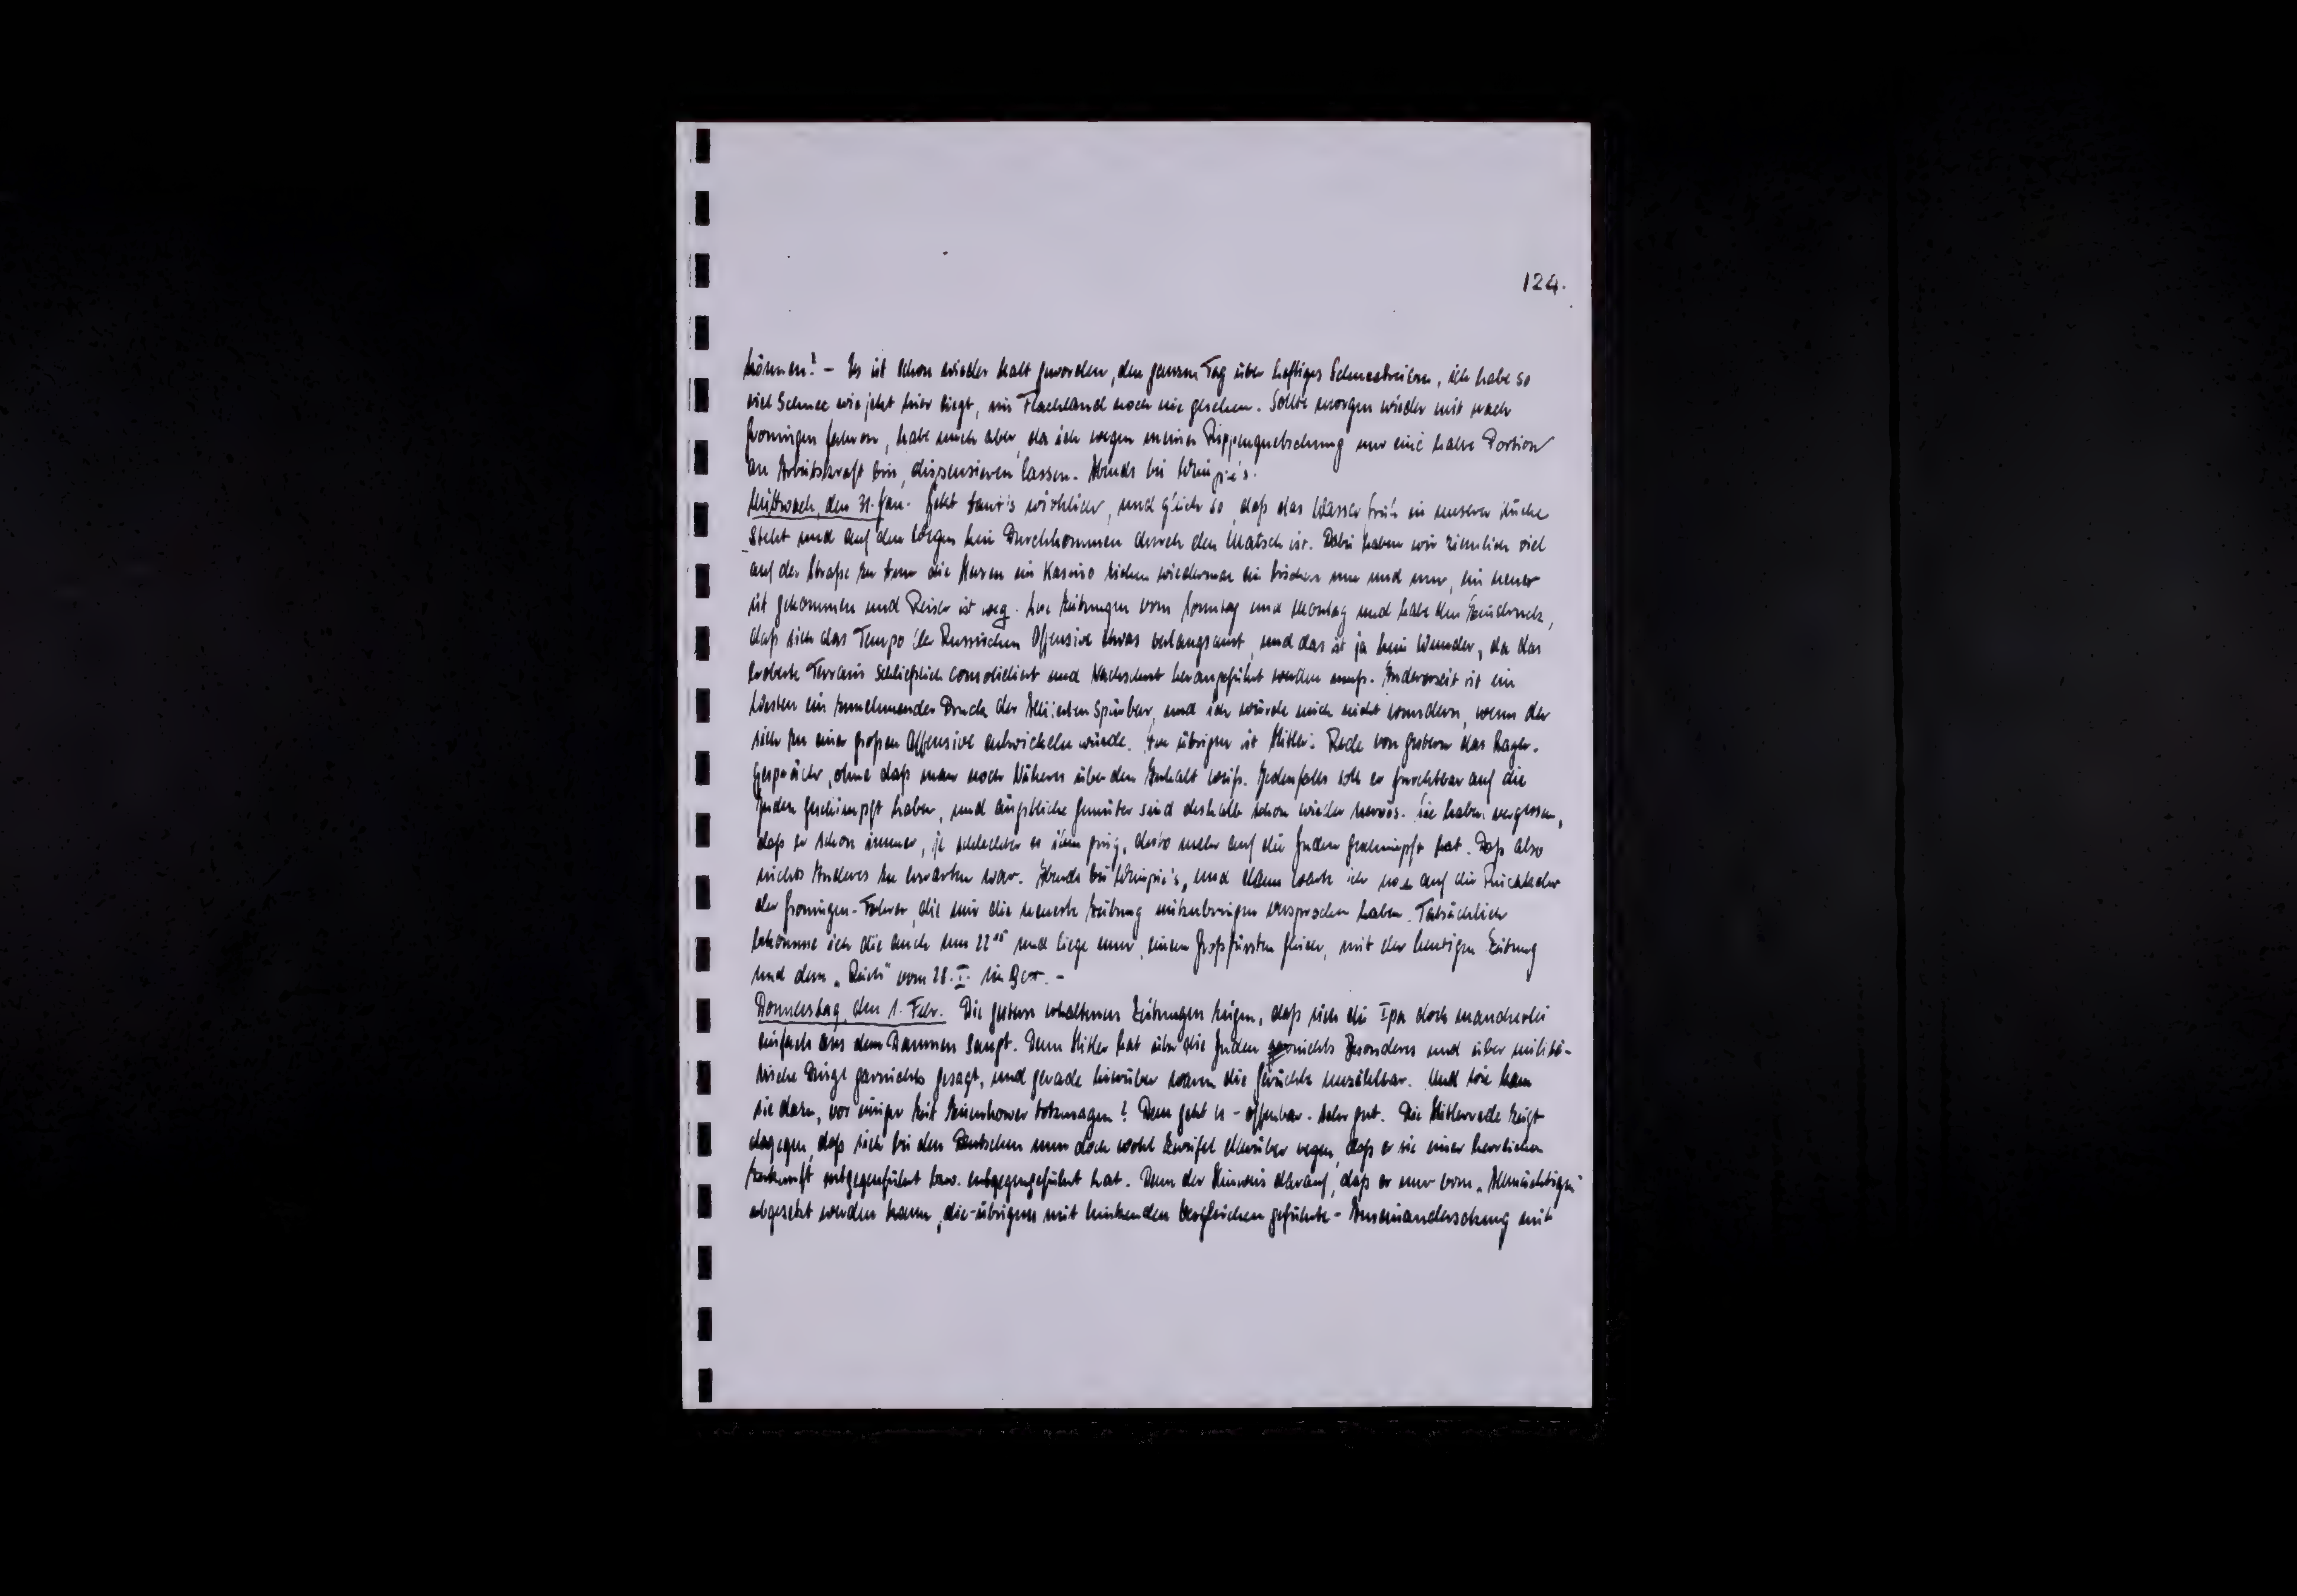 124.
können? – Es ist schon wieder kalt geworden, den ganzen Tag über heftiges Schneetreiben, ich habe so
viel Schnee wie jetzt hier liegt, im Flachland noch nie gesehen. Sollte morgen wieder mit nach
Groningen fahren, habe mich aber, da ich wegen meiner Rippenquetschung nur eine halbe Portion
an Arbeitskraft bin, dispensieren lassen. Abends bei
Mittwoch, den 31. Jan. Jetzt taut's wirklich, und gleich so, daß das Wasser früh in unserer Küche
steht und auf den Wegen kein Durchkommen durch den Matsch ist. Dabei haben wir ziemlich viel
auf der Straße zu tun die Herren im Kasino ziehen wiedermal ein bischen um und um, ein neuer
ist gekommen und Reiser ist weg. Lese Zeitungen vom Sonntag und Montag und habe den Eindruck,
daß sich das Tempo der Russischen Offensive etwas verlangsamt, und das ist ja kein Wunder, da das
eroberte Terrain schließlich consolidiert und Nachschub herangeführt werden muß. Anderseits ist im
Westen ein zunehmender Druck der Alliierten spürbar, und ich würde mich nicht wundern, wenn der
sich zu einer großen Offensive entwickeln würde. Im übrigen ist Hitlers Rede von gestern das Lager-
Gespräch, ohne daß man noch Näheres über den Inhalt weiß. Jedenfalls soll er furchtbar auf die
Juden geschimpft haben, und ängstliche Gemüter sind deshalb schon wieder nervös. Sie haben vergessen,
daß er schon immer, je schlechter es ihm ging, desto mehr auf die Juden geschimpft hat. Daß also
nichts Anderes zu erwarten war. Abends bei und dann warte ich noch auf die Rückkehr
der Groningen-Fahrer, die mir die neueste Zeitung mitzubringen versprochen haben. Tatsächlich
bekomme ich die auch um 22 und liege nun, einem Großfürsten gleich, mit der heutigen Zeitung
und dem „Reich" vom 28. I. im Bett. –
Donnerstag, den 1. Febr. Die gestern erhaltenen Zeitungen zeigen, daß sich die Ipa doch mancherlei
einfach aus dem Daumen saugt. Denn Hitler hat über die Juden nichts Besonderes und über militä-
rische Dinge garnichts gesagt, und gerade hierüber waren die Gerüchte unzählbar. Und wie kam
sie dazu, vor einiger Zeit Eisenhower totzusagen? Dem geht es – offenbar – sehr gut. Die Hitlerrede zeigt
dagegen, daß sich bei den Deutschen nun doch wohl Zweifel darüber regen, daß er sie einer herrlichen
Zukunft entgegenführt bzw. entgegengeführt hat. Denn der Hinweis darauf, daß er nur vom „Allmächtigen"
abgesetzt werden kann, die – übrigens mit hinkenden Vergleichen geführte – Auseinandersetzung mit